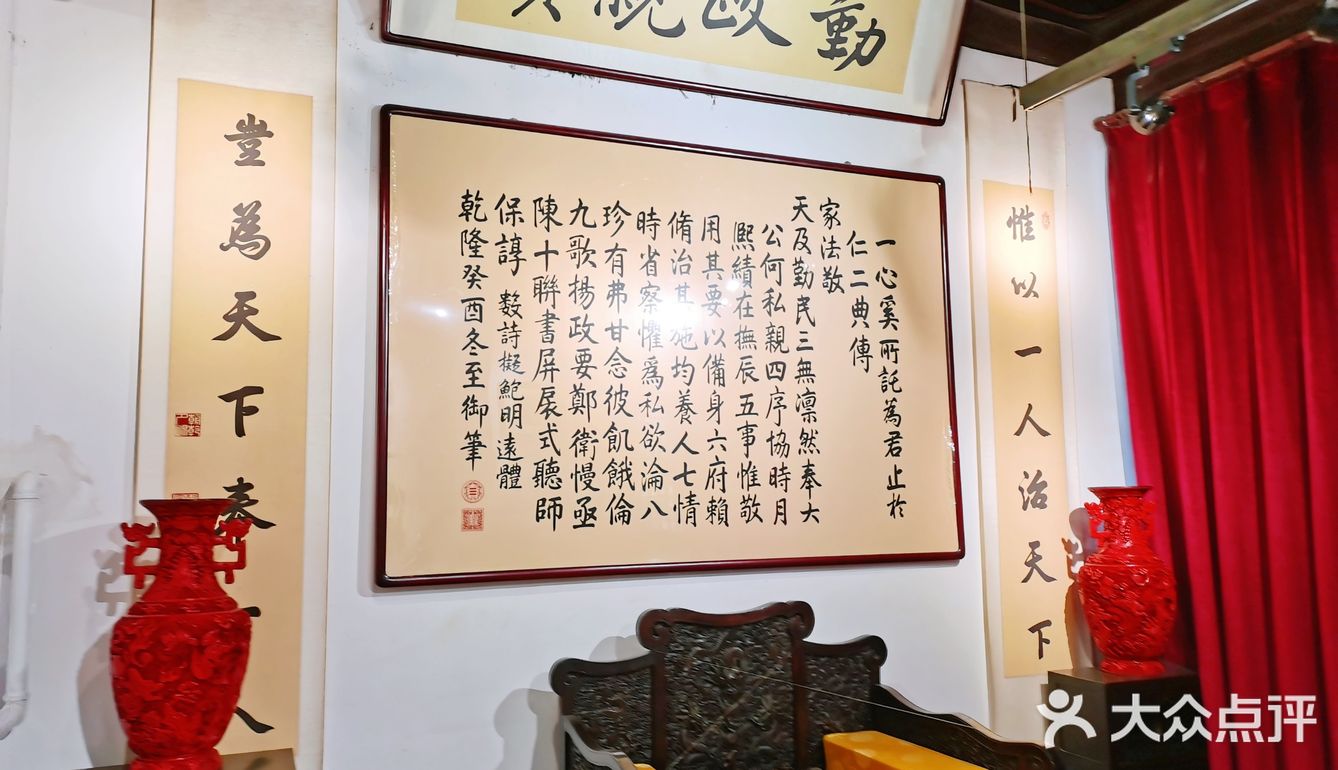 勤政親賢
惟以一人治天下
一心奚所託為君止於
仁二典傳
家法敬
天及勤民三無凛然奉大
公何私親四序協時月
熈績在撫辰五事惟敬
用其要以備身六府賴
脩治其施均養人七情
時省察懼為私欲淪八
珍有弗甘念彼飢餓倫
九歌揚政要鄭衛慢亟
陳十聯書屏扆式聽師
保諄 数詩擬鮑明遠體
乾隆癸酉冬至御筆
豈為天下奉一人
大众点评